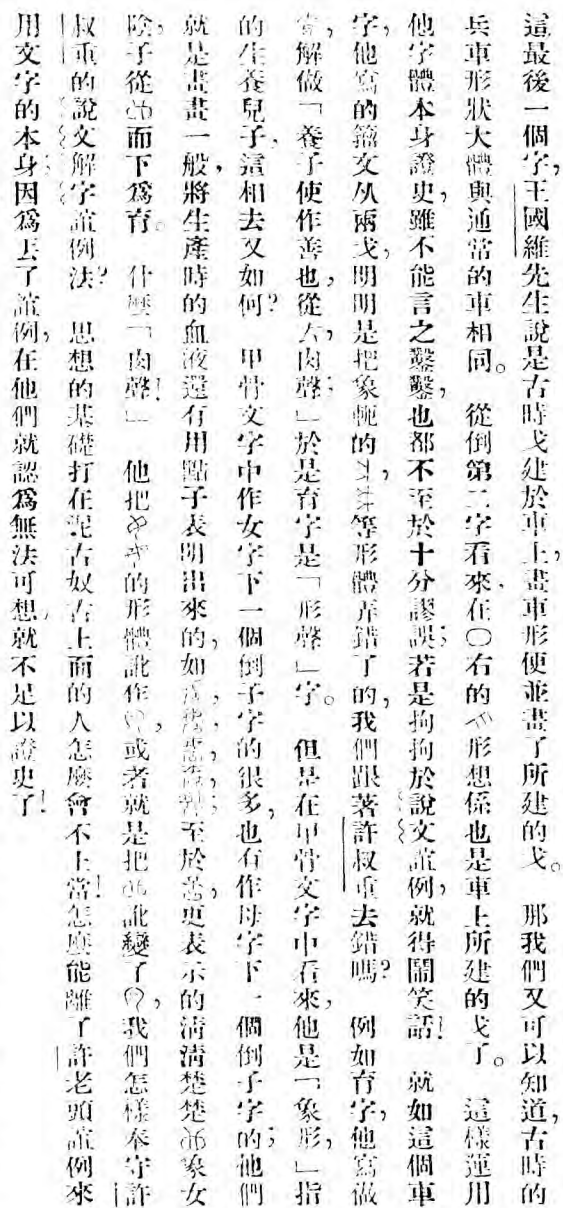 這最後一個字,王國維先生說是古時戈建於車上,畫車形便並畫了所建的戈。 那我們又可以知道,古時的
兵車形狀大體與通常的車相同。 從倒第二字看來,在〇右的形想係也是車上所建的戈了。 這樣運用
他字體本身證史,雖不能言之鑿鑿,也都不至於十分謬誤;若是拘拘於說文誼例,就得鬧笑話! 就如這個車
字,他寫的籀文从兩戈,明明是把象軛的等形體弄錯了的,我們跟著許叔重去錯嗎? 例如育字,他寫做
解做「養子使作善也,從𠫓,肉聲;」於是育字是「形聲」字。 但是在甲骨文字中看來,他是「象形,」指
的生養兒子,這相去又如何? 甲骨文字中作女字下一個倒子字的很多,也有作母字下一個倒子字的;他們
就是畫畫一般,將生產時的血液還有用點子表明出來的,如至於更表示的清清楚楚象女
陰,子從而下爲育。 什麼「肉聲!」 他把的形體訛作,或者就是把訛變了,我們怎樣奉守許
叔重的說文解字誼例法? 思想的基礎打在泥古奴古上面的人怎麼會不上當!怎麼能離了許老頭誼例來
用文字的本身;因爲去了誼例,在他們就認爲無法可想,就不足以證史了!